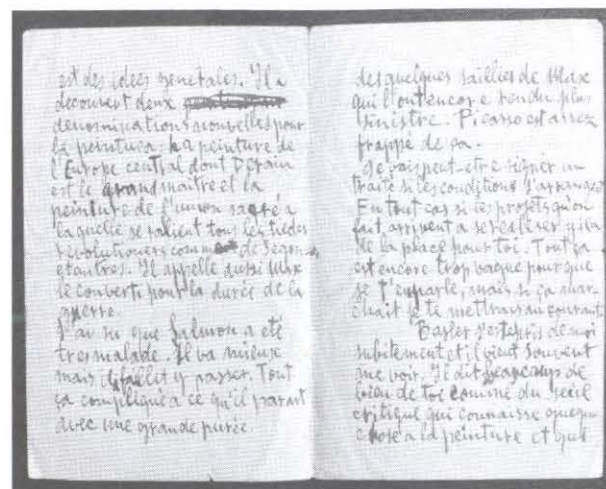 est des idees generales. Il a
decouvert deux
denominations nouvelles pour
la peinture: la peinture de
l'Europe central dont Derain
est le grand maitre et la
peinture de l'union sacré a
laquelle se ralient tous les tiedes
revolutioners comme de Segon
et autres. Il appelle aussi Max
le converti pour la durée de la
guerre.
J'ai su que Salmon a eté
tres malade. Il va mieux
mais il faillit y passer. Tout
ça compliqué a ce qu'il parait
avec une grande purée.
des quelques saillies de Max
qui l'ont encore rendu plus
sinistre. Picasso est assez
frappé de ça.
Je vais peut-etre signer un
traité si les conditions s'arrangent
En tout cas si les projets qu'on
fait arrivent a se realiser y il a
de la place pour toi. Tout ça
est encore trop vague pour que
je t'en parle, mais si ça mar-
chait je te mettrais au courant.
Basler s'est epris de moi
subitement et il vient souvent
me voir. Il dit beaucoup de
bien de toi comme du seul
critique qui connaisse quelque
chose a la peinture et que